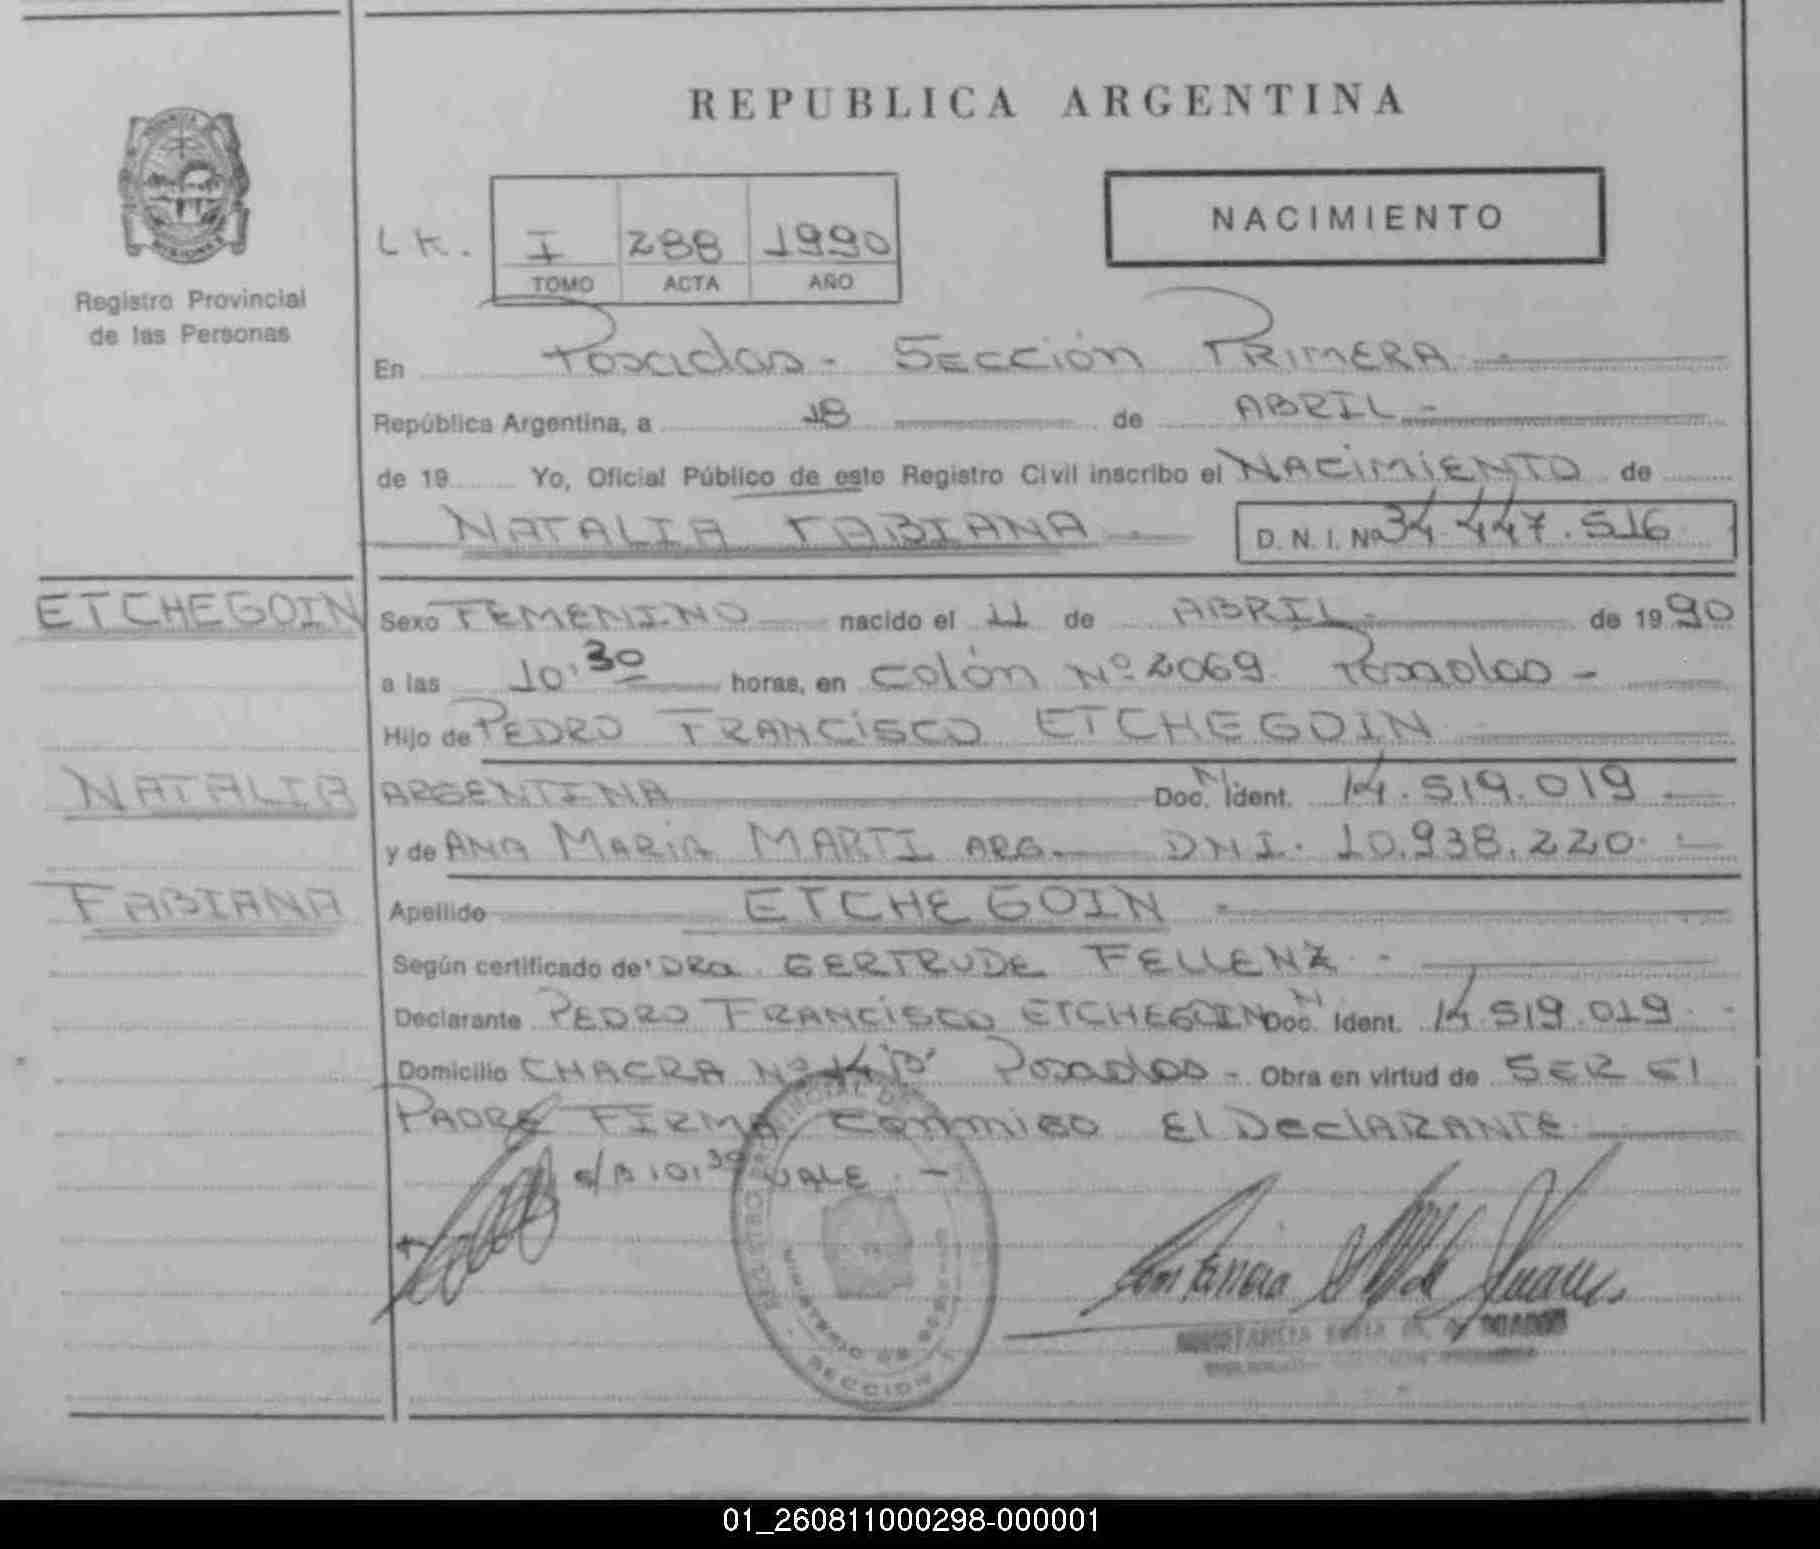 REPUBLICA ARGENTINA
MISIONES
Registro Provincial
de las Personas
NACIMIENTO
LK. I 288 1990
TOMO ACTA AÑO
En Posadas - SECCIÓN PRIMERA
República Argentina, a 18 de ABRIL -
de 19 Yo, Oficial Público de este Registro Civil inscribo el NACIMIENTO de
NATALIA FABIANA - D. N. I. Nº 34.447.516
ETCHEGOIN
Sexo FEMENINO nacido el 11 de ABRIL - de 19 90
a las 10:30 horas, en Colón Nº 2069. Posadas -
Hijo de PEDRO FRANCISCO ETCHEGOIN
NATALIA
ARGENTINA Doc. N Ident. 14.519.019
y de ANA MARIA MARTI ARG. DNI. 10.938.220. -
FABIANA
Apellido ETCHEGOIN -
Según certificado de DRA. GERTRUDE FELLENZ -
Declarante PEDRO FRANCISCO ETCHEGOIN Doc. N Ident. 14.519.019 -
Domicilio CHACRA Nº Posadas - Obra en virtud de SER El
PADRE FIRMA CONMIGO El DEClARANTE
s/B 10:30 VALE. -
REGISTRO PROVINCIAL DE
MINISTERIO DE GOBIERNO
SECCION
01_260811000298-000001